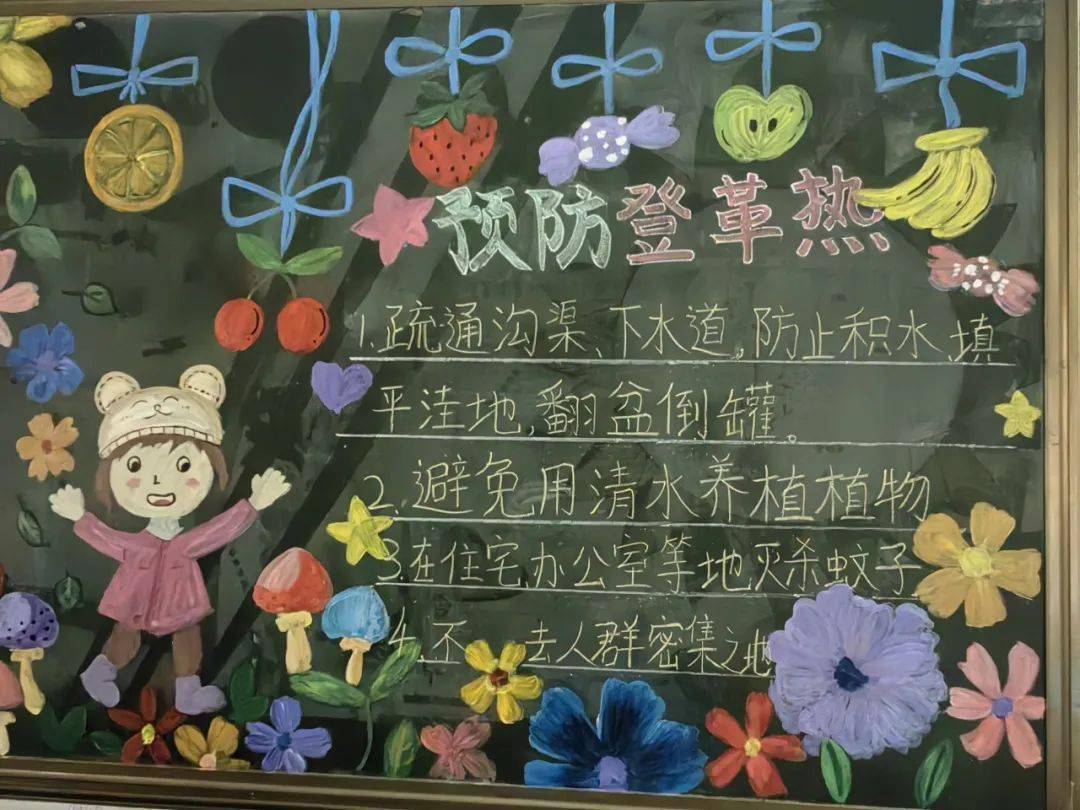 预防登革热
1.疏通沟渠、下水道,防止积水、填
平洼地,翻盆倒罐。
2.避免用清水养植植物
3.在住宅办公室等地灭杀蚊子
4.不 去人群密集之地